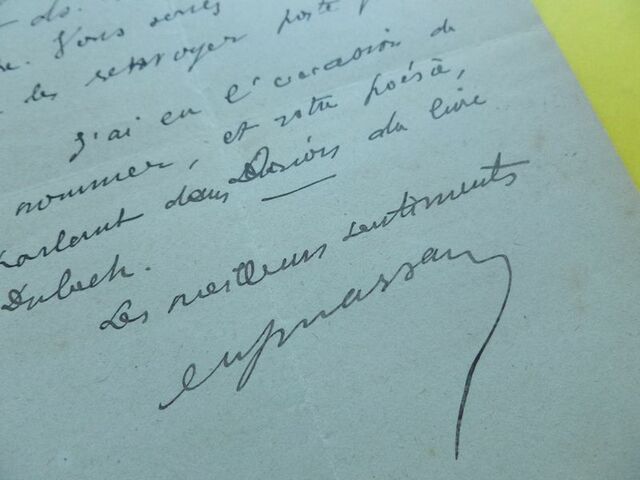 Vous serez
les renvoyer poste
J'ai eu l'occasion de
nommer, et votre poésie,
parlant dans du livre
Dubech.
Les meilleurs sentiments